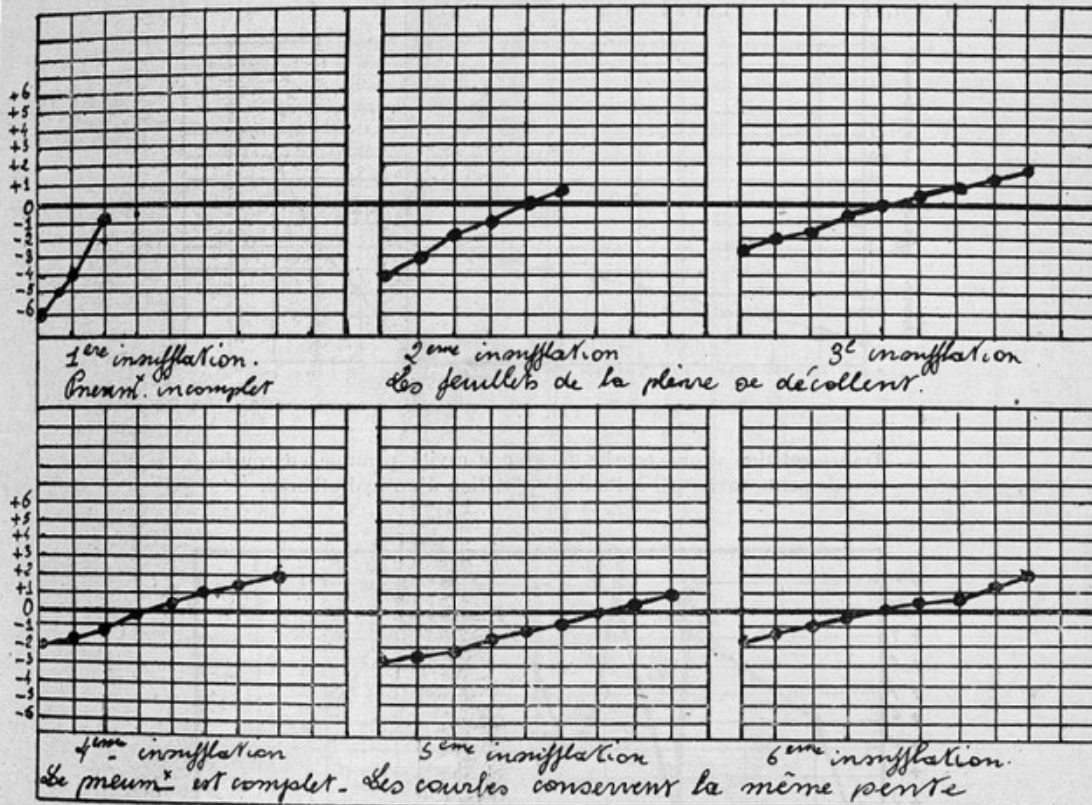 +6
+5
+4
+3
+2
+1
0
-1
-2
-3
-4
-5
-6
1ere insufflation.
2eme insufflation
3e insufflation
Pneumx. incomplet
Les feuillets de la plèvre se décollent.
+6
+5
+4
+3
+2
+1
0
-1
-2
-3
-4
-5
-6
4eme insufflation
5eme insufflation
6eme insufflation.
Le pneumx est complet_ Les courbes conservent la même pente